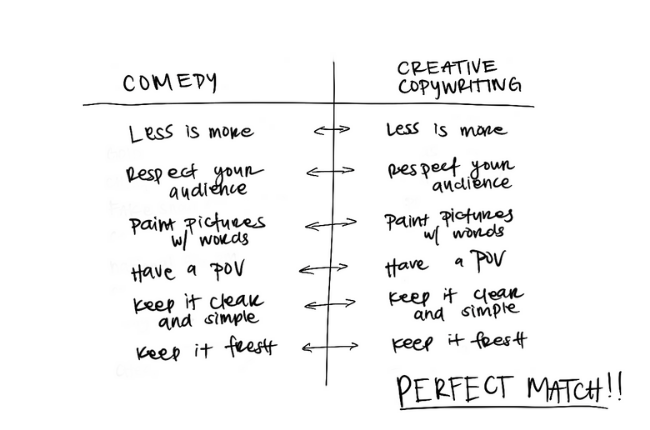 COMEDY
CREATIVE
COPYWRITING
Less is more
Less is more
Respect your
audience
Respect your
audience
Paint pictures
w/ words
Paint pictures
w/ words
Have a POV
Have a POV
Keep it clear
and simple
Keep it clear
and simple
Keep it fresh
Keep it fresh
PERFECT MATCH!!